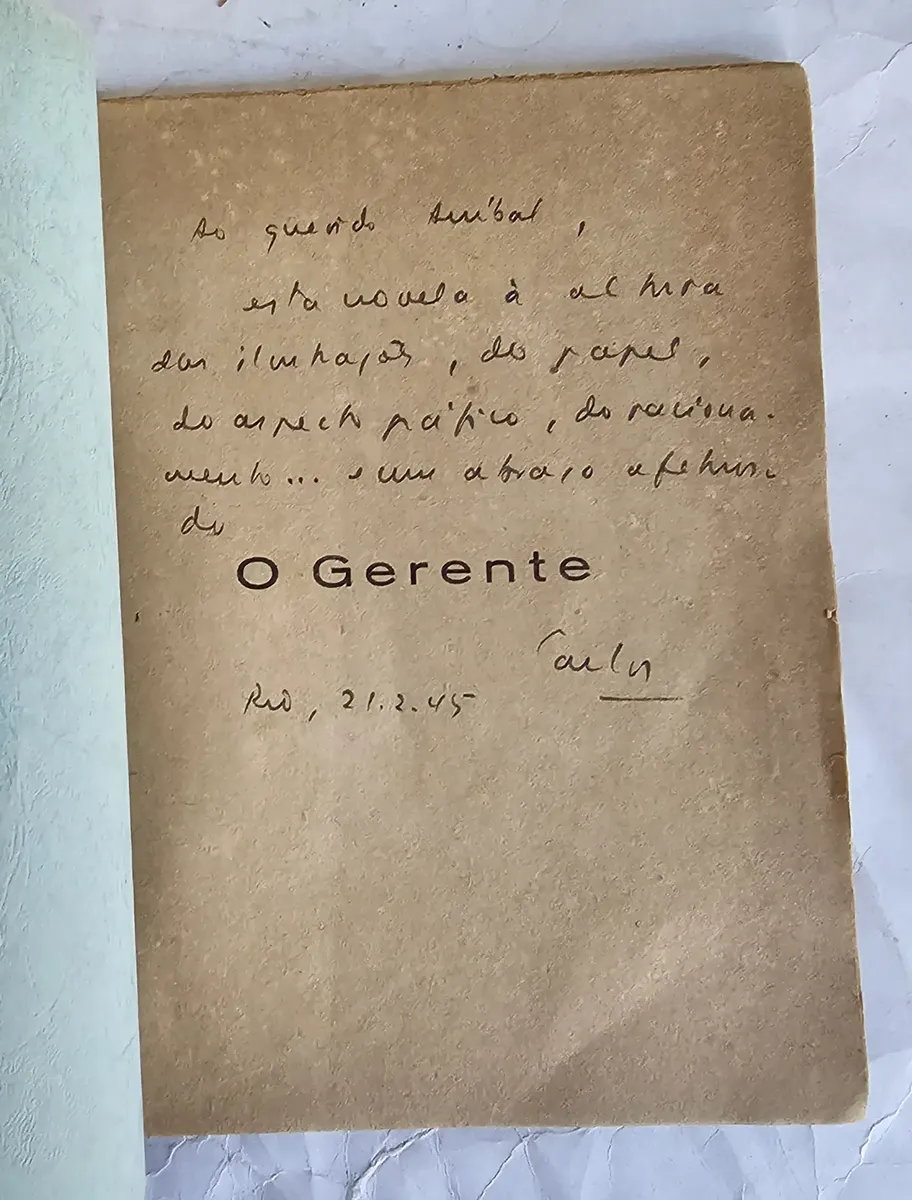 Ao querido Aníbal,
esta novela à altura
das ilustrações, do papel,
do aspecto gráfico, do raciona-
mento... e um abraço afetuoso
do
O Gerente
Carlos
Rio, 21.2.45